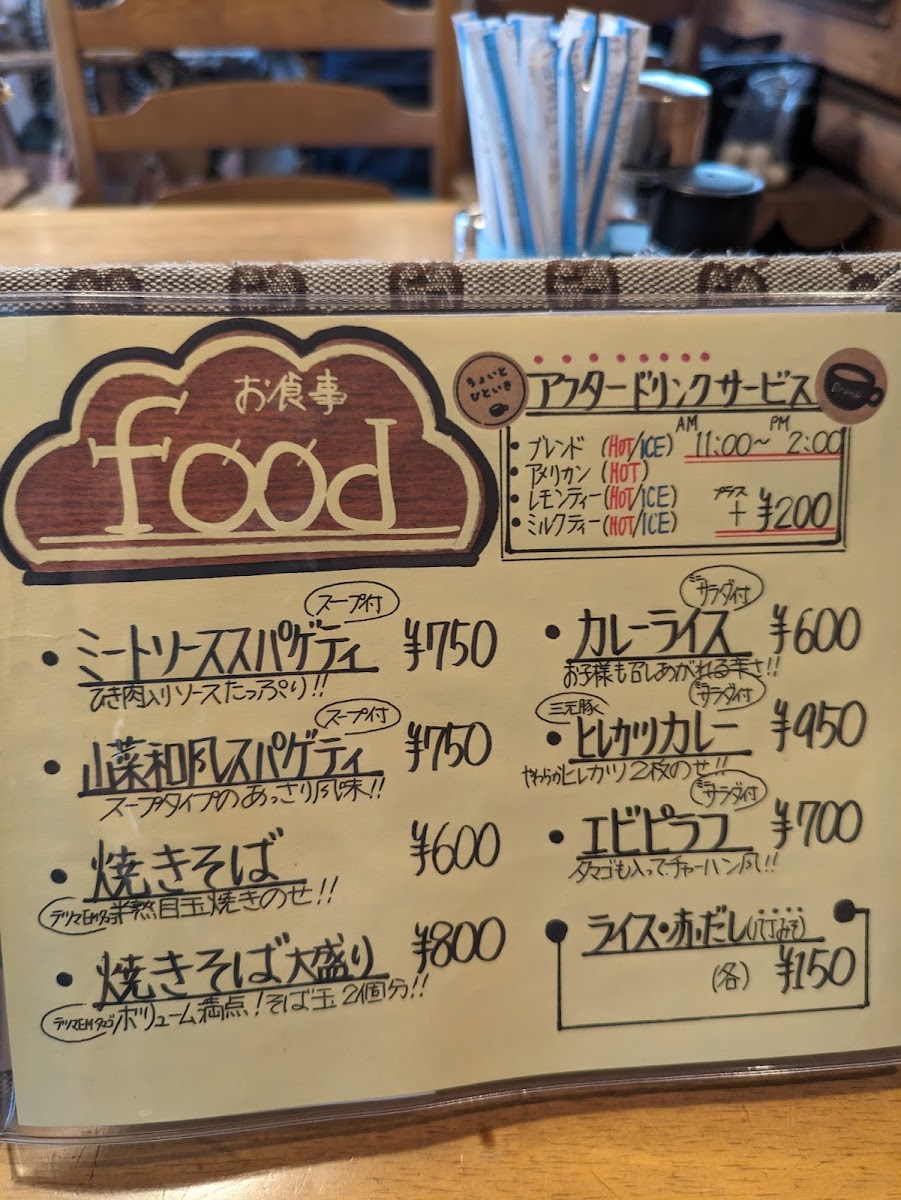 お食事
food
ちょいと
ひといき
アフタードリンクサービス
Drink
AM PM
11:00～2:00
・ブレンド (HOT/ICE)
・アメリカン (HOT)
・レモンティー (HOT/ICE)
・ミルクティー (HOT/ICE)
プラス
+ ¥200
スープ付
・ミートソーススパゲティ ¥750
ひき肉入りソースたっぷり!!
スープ付
・山菜和風スパゲティ ¥750
スープタイプのあっさり風味!!
・焼きそば ¥600
デリシャEMタマゴ 半熟目玉焼きのせ!!
・焼きそば大盛り ¥800
ボリューム満点!そば玉2個分!!
ミニサラダ付
・カレーライス ¥600
お子様も召しあがれる辛さ!!
三元豚 ミニサラダ付
・ヒレカツカレー ¥950
やわらかヒレカツ2枚のせ!!
ミニサラダ付
・エビピラフ ¥700
タマゴも入ってチャーハン風!!
ライス・赤だし(八丁みそ)
(各) ¥150